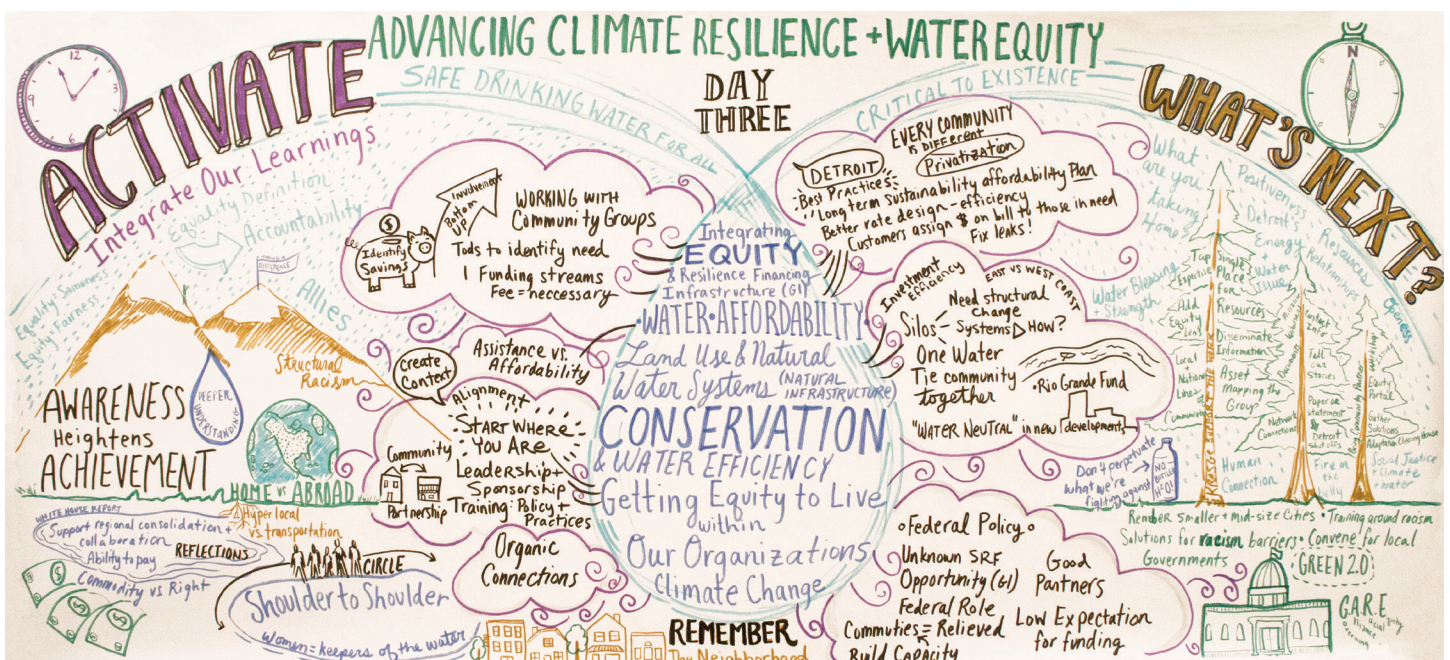 ADVANCING CLIMATE RESILIENCE + WATER EQUITY
DAY
THREE
SAFE DRINKING WATER FOR ALL
CRITICAL TO EXISTENCE
12
3
9
ACTIVATE
Integrate Our Learnings
Equality Definition
Accountability
Equality = Sameness
Equity = Fairness
Allies
DIFFERENCE
Structural
Racism
DEEPER
UNDERSTANDING
AWARENESS
Heightens
ACHIEVEMENT
HOME vs ABROAD
WHITE HOUSE REPORT
Support regional consolidation +
collaboration
Ability to pay
REFLECTIONS
Hyper local
vs. transportation
Commodity vs Right
CIRCLE
Shoulder to Shoulder
Women = keepers of the water
Identify
Savings
Involvement
Bottom
Up
WORKING WITH
Community Groups
Tools to identify need
1 Funding streams
Fee = neccessary
Create
Context
Assistance vs.
Affordability
Alignment
START WHERE
YOU ARE
Leadership +
Sponsorship
Training: Policy +
Practices
Community
Partnership
Organic
Connections
Integrating
EQUITY
& Resilience Financing
Infrastructure (GI)
• WATER • AFFORDABILITY
Land Use & Natural
Water Systems (NATURAL
INFRASTRUCTURE)
CONSERVATION
& WATER EFFICIENCY
Getting Equity to Live
within
Our Organizations
Climate Change
REMEMBER
The Neighborhood
EVERY COMMUNITY
IS DIFFERENT
Privatization
DETROIT
Best Practices
Long term Sustainability affordability Plan
Better rate design - efficiency
Customers assign $ on bill to those in need
Fix leaks!
Investment
Efficiency
EAST VS WEST COAST
Need structural
change
Silos
Systems
How?
One Water
Tie community
together
• Rio Grande Fund
"WATER NEUTRAL" in new developments
Don't perpetuate
what we're
fighting against
• Federal Policy •
Unknown SRF
Opportunity (GI)
Federal Role
Commuties = Relieved
Build Capacity
Good
Partners
Low Expectation
for funding
N
WHAT'S NEXT?
What
are you
taking
Home?
Positiveness
Detroit's
Energy
+
Water
Issue
Resources
Relationships
Openess
Water Blessing
+ Strength
Tap
Expertise
Add
Equity
Lens
Local
+
National
Lines of
Communication
KRESGE SUPPORT THE WORK
Single
Place
For
Resources
Disseminate
Information
Asset
Mapping the
Group
Network
Connections
Human
Connection
Contact
Info
Tell
our
Stories
Paper or
statement
Detroit
shut offs
Fire in
the
Belly
Equity
Portal
Gather
Solutions
Adaptation Clearing House
Social Justice
+ Climate
+ water
Rember smaller + mid-size Cities • Training around racism
Solutions for racism barriers • Convene for local
Governments
GREEN 2.0
G.A.R.E.